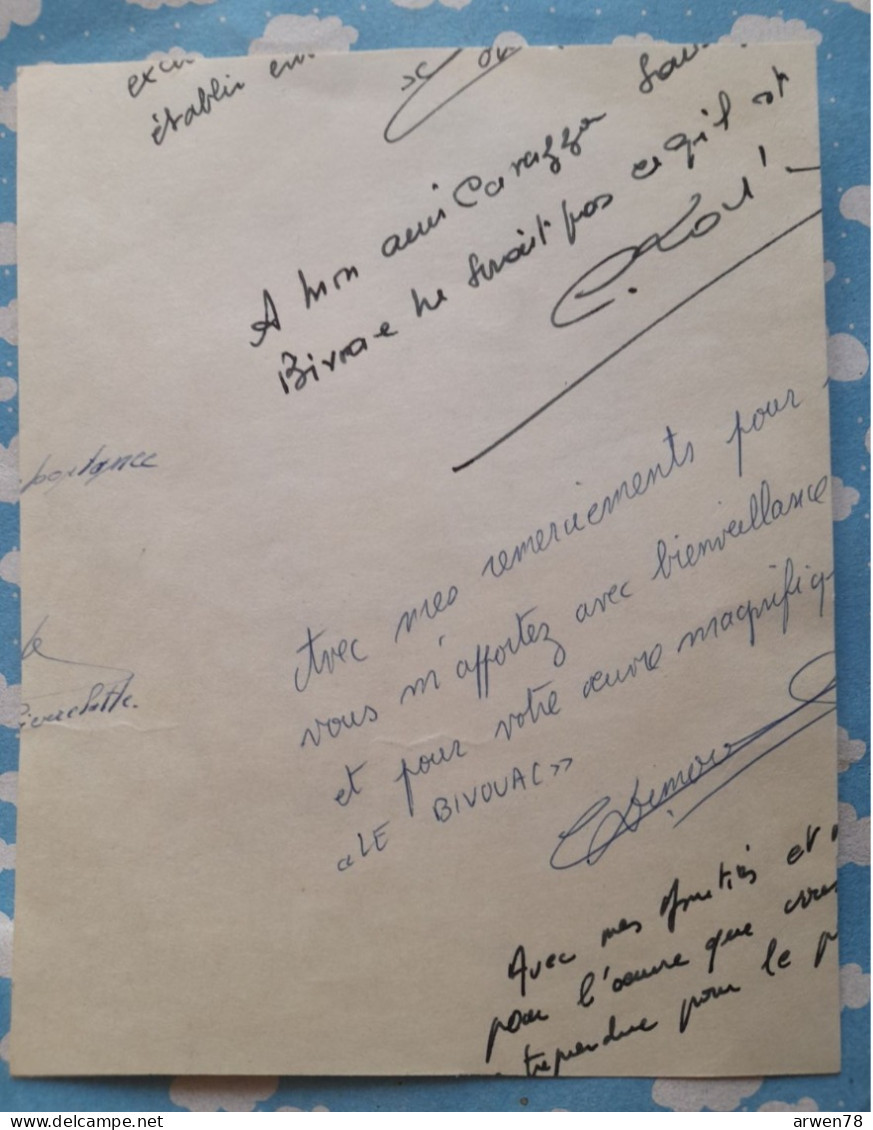 établir
A mon ami Carazza sans
Bivouac ne serait pas ce qu'il est
Avec mes remerciements pour
vous m'apportez avec bienveillance
et pour votre œuvre magnifiq
«LE BIVOUAC»
Avec mes amitiés et
pour l'œuvre que vous
treprendre pour le p
delcampe.net
arwen78